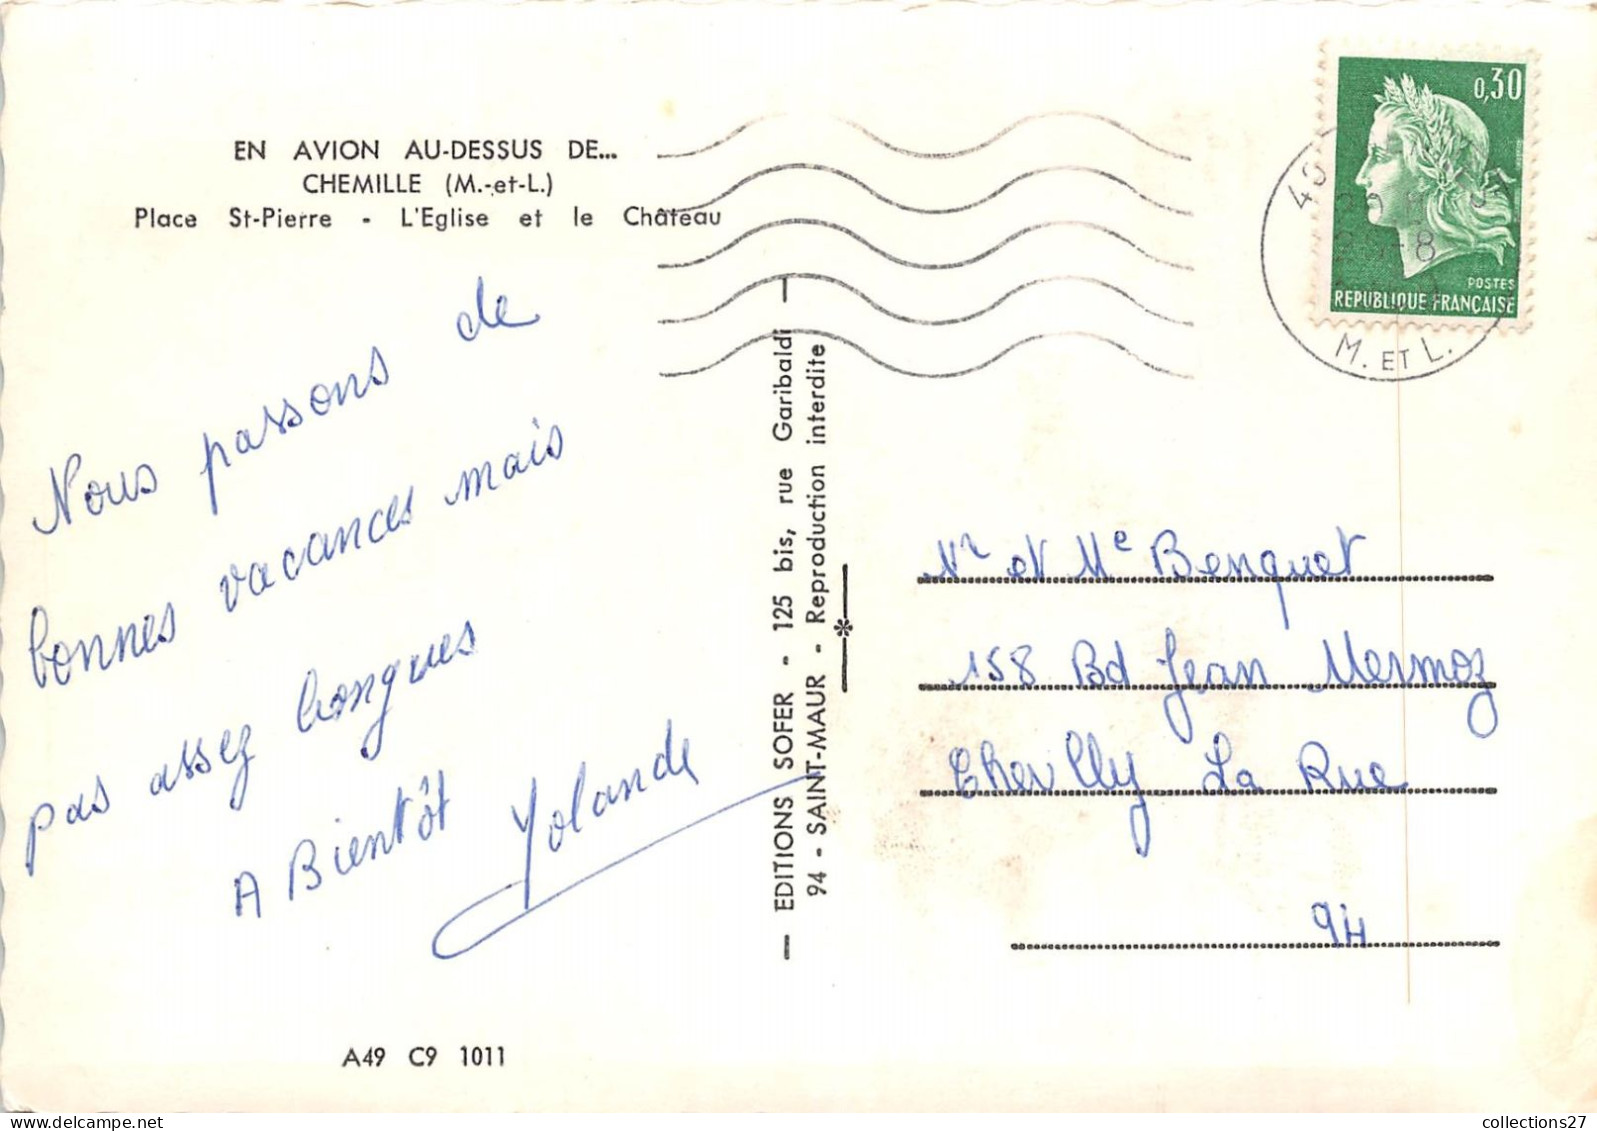 EN AVION AU-DESSUS DE...
CHEMILLE (M.-et-L.)
Place St-Pierre - L'Eglise et le Château
Nous passons de
bonnes vacances mais
pas assez longues
A Bientôt Yolande
A49 C9 1011
— EDITIONS SOFER - 125 bis, rue Garibaldi —
94 - SAINT-MAUR - Reproduction interdite
0,30
POSTES
REPUBLIQUE FRANÇAISE
M. ET L.
Mr et Me Benquet
158 Bd Jean Mermoz
Chevilly La Rue
94
collections27